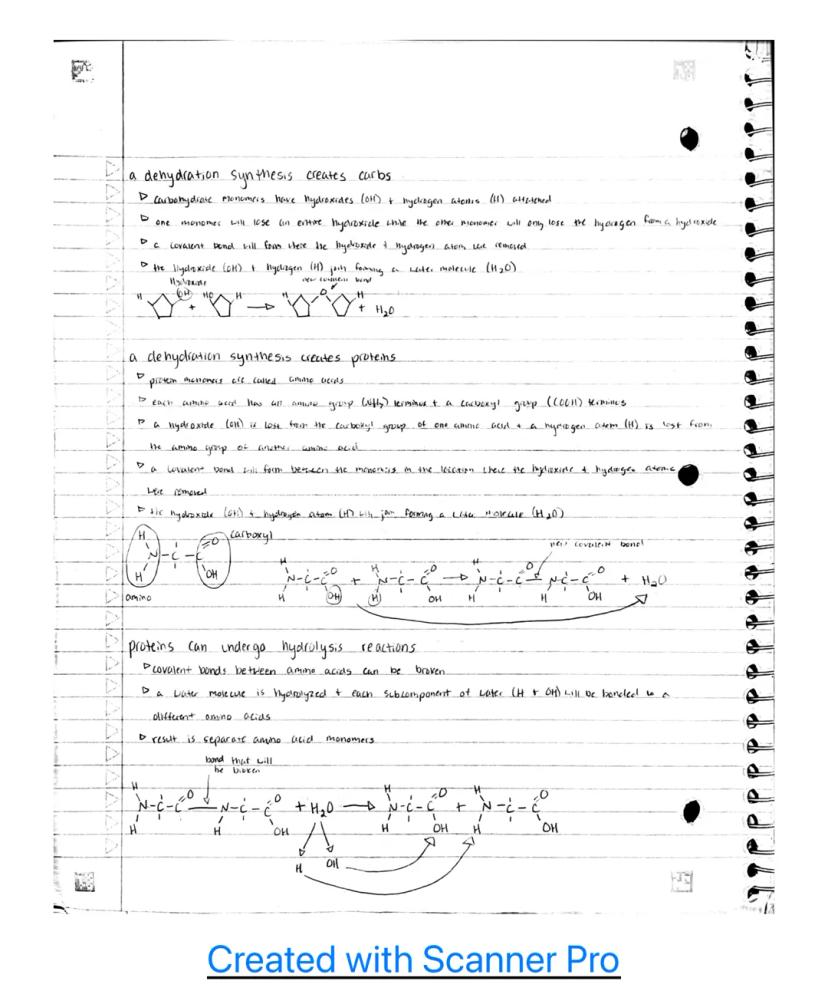 a dehydration synthesis creates carbs
▷ carbohydrate monomers have hydroxides (OH) + hydrogen atoms (H) attatched
▷ one monomer will lose an entire hydroxide while the other monomer will only lose the hydrogen from a hydroxide
▷ a covalent bond will form where the hydroxide + hydrogen atom were removed
▷ the hydroxide (OH) + hydrogen (H) join forming a water molecule (H₂O)
Hydroxide new covalent bond
H OH + HO H → H O H + H₂O
a dehydration synthesis creates proteins
▷ protein monomers are called amino acids
▷ each amino acid has an amino group (NH₂) terminus + a carboxyl group (COOH) terminus
▷ a hydroxide (OH) is lost from the carboxyl group of one amino acid + a hydrogen atom (H) is lost from
the amino group of another amino acid
▷ a covalent bond will form between the monomers in the location where the hydroxide + hydrogen atoms
were removed
▷ the hydroxide (OH) + hydrogen atom (H) will join forming a water molecule (H₂O)
carboxyl
new covalent bond
H H N-C-C=O OH
amino
H H N-C-C=O OH + H H N-C-C=O OH → H H N-C-C=O - H N-C-C=O OH + H₂O
proteins can undergo hydrolysis reactions
▷ covalent bonds between amino acids can be broken
▷ a water molecule is hydrolyzed + each subcomponent of water (H + OH) will be bonded to a
different amino acids
▷ result is separate amino acid monomers
bond that will
be broken
H H N-C-C=O — H N-C-C=O OH + H₂O → H H N-C-C=O OH + H H N-C-C=O OH
H OH
Created with Scanner Pro